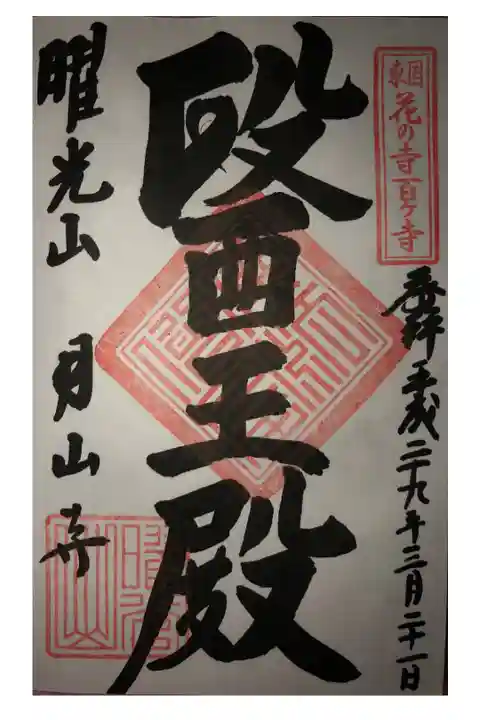 東国花の寺百ヶ寺
奉拝 平成二十九年三月二十一日
醫王殿
曜光山 月山寺